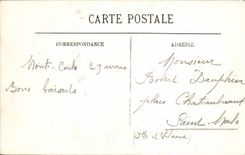 CARTE POSTALE
CORRESPONDANCE
ADRESSE
Mont-Carlo 29 mars
Bons baisers
Monsieur
Robert Dauphin
place Chateaubriand
Saint-Malo
(Ille et Vilaine)